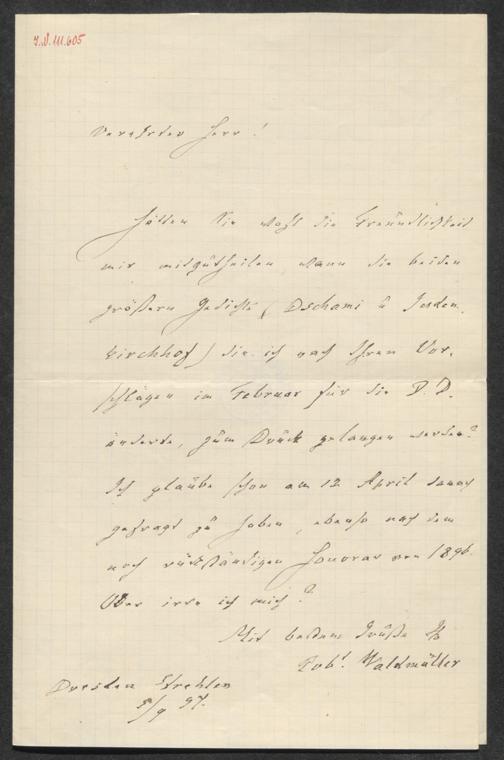 I.N. 111.605
Verehrter Herr!
Hätten Sie wohl die Freundlichkeit
mir mitzutheilen wann die beiden
größern Gedichte (Dschami u Juden-
kirchhof) die ich nach Ihren Vor-
schlägen im Februar für die D. D.
änderte, zum Druck gelangen werden?
Ich glaube schon am 12 April danach
gefragt zu haben, ebenso nach dem
noch rückständigen Honorar von 1896.
Oder irre ich mich?
Mit bestem Gruße
Waldmüller
Dresden Strehlen
5/9 97.